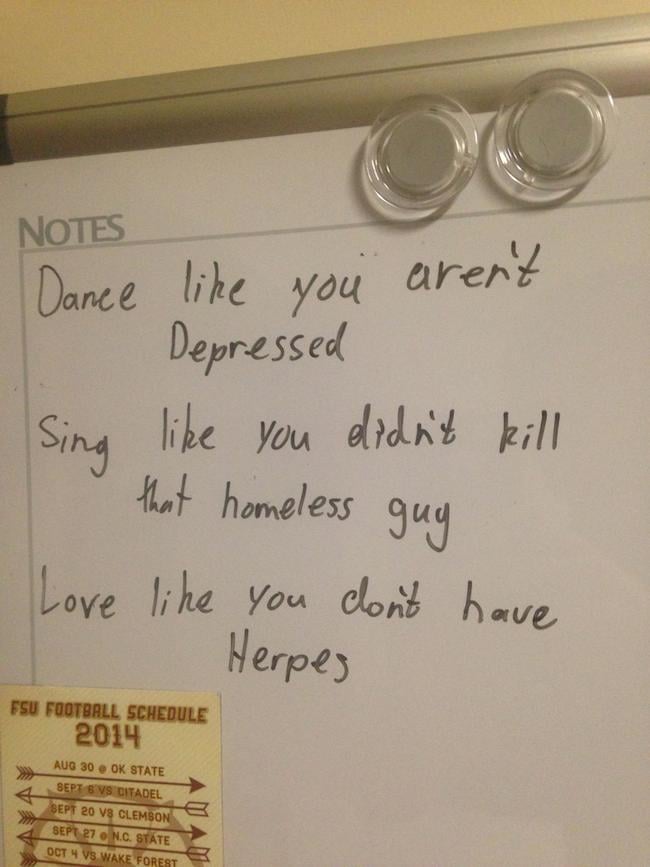 NOTES
Dance like you aren't
Depressed
Sing like you didn't kill
that homeless guy
Love like you don't have
Herpes
FSU FOOTBALL SCHEDULE
2014
AUG 30 @ OK STATE
SEPT 6 VS CITADEL
SEPT 20 VS CLEMSON
SEPT 27 @ N.C. STATE
OCT 4 VS WAKE FOREST